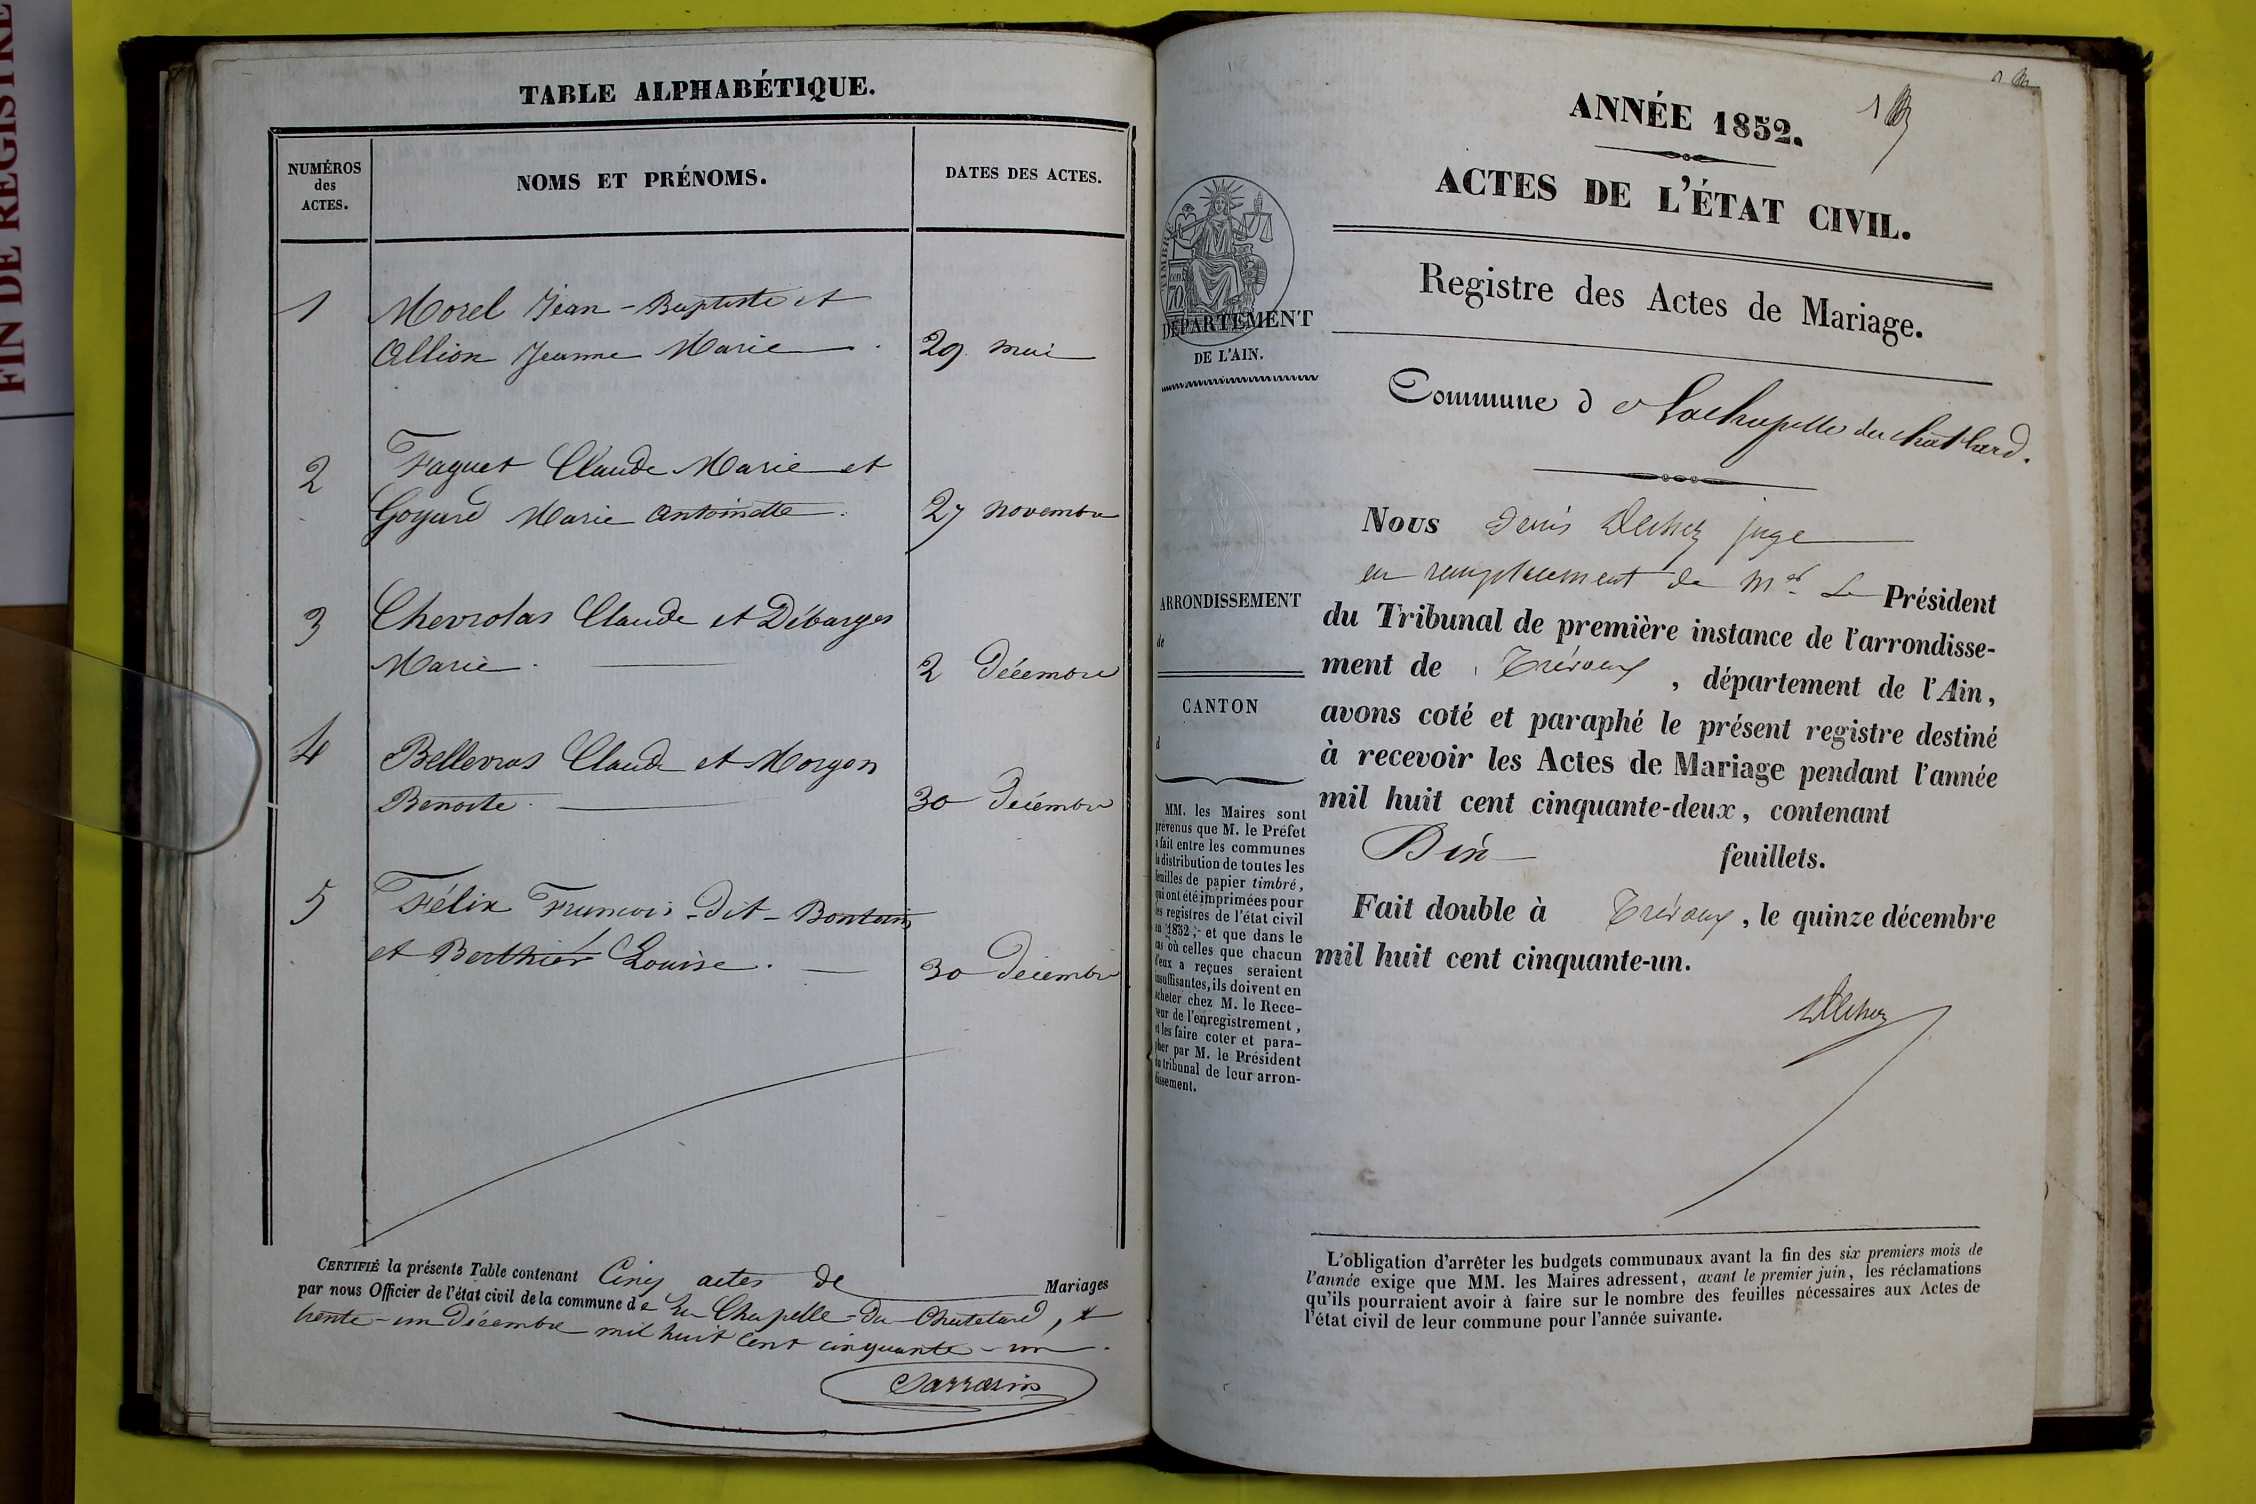 FIN DE REGISTRE
TABLE ALPHABÉTIQUE.
NUMÉROS
des
ACTES.
NOMS ET PRÉNOMS.
DATES DES ACTES.
1
Morel Jean-Baptiste et
Allion Jeanne Marie
29 mai
2
Faguet Claude Marie et
Goyard Marie Antoinette
27 novembre
3
Chevrolas Claude et Débarges
Marie.
2 Décembre
4
Bellevras Claude et Morgon
Benoite.
30 Décembre
5
Félix François-dit-Bontems
et Berthier Louise.
30 Décembre
CERTIFIÉ la présente Table contenant Cinq actes de Mariages
par nous Officier de l'état civil de la commune de La Chapelle-du-Chatelard, le
trente-un Décembre mil huit Cent cinquante-un.
Sarrasin
1
ANNÉE 1852.
ACTES DE L'ÉTAT CIVIL.
Registre des Actes de Mariage.
70
DÉPARTEMENT
DE L'AIN.
Commune de Lachapelle du Chatelard.
Nous Denis juge
en remplacement de Mr. Le Président
du Tribunal de première instance de l'arrondisse-
ment de Trévoux, département de l'Ain,
avons coté et paraphé le présent registre destiné
à recevoir les Actes de Mariage pendant l'année
mil huit cent cinquante-deux, contenant
Dix feuillets.
Fait double à Trévoux, le quinze décembre
mil huit cent cinquante-un.
ARRONDISSEMENT
de
CANTON
d
MM. les Maires sont
prévenus que M. le Préfet
a fait entre les communes
la distribution de toutes les
feuilles de papier timbré,
qui ont été imprimées pour
les registres de l'état civil
en 1852; et que dans le
cas où celles que chacun
d'eux a reçues seraient
insuffisantes, ils doivent en
acheter chez M. le Rece-
veur de l'enregistrement,
et les faire coter et para-
pher par M. le Président
du tribunal de leur arron-
dissement.
L'obligation d'arrêter les budgets communaux avant la fin des six premiers mois de
l'année exige que MM. les Maires adressent, avant le premier juin, les réclamations
qu'ils pourraient avoir à faire sur le nombre des feuilles nécessaires aux Actes de
l'état civil de leur commune pour l'année suivante.